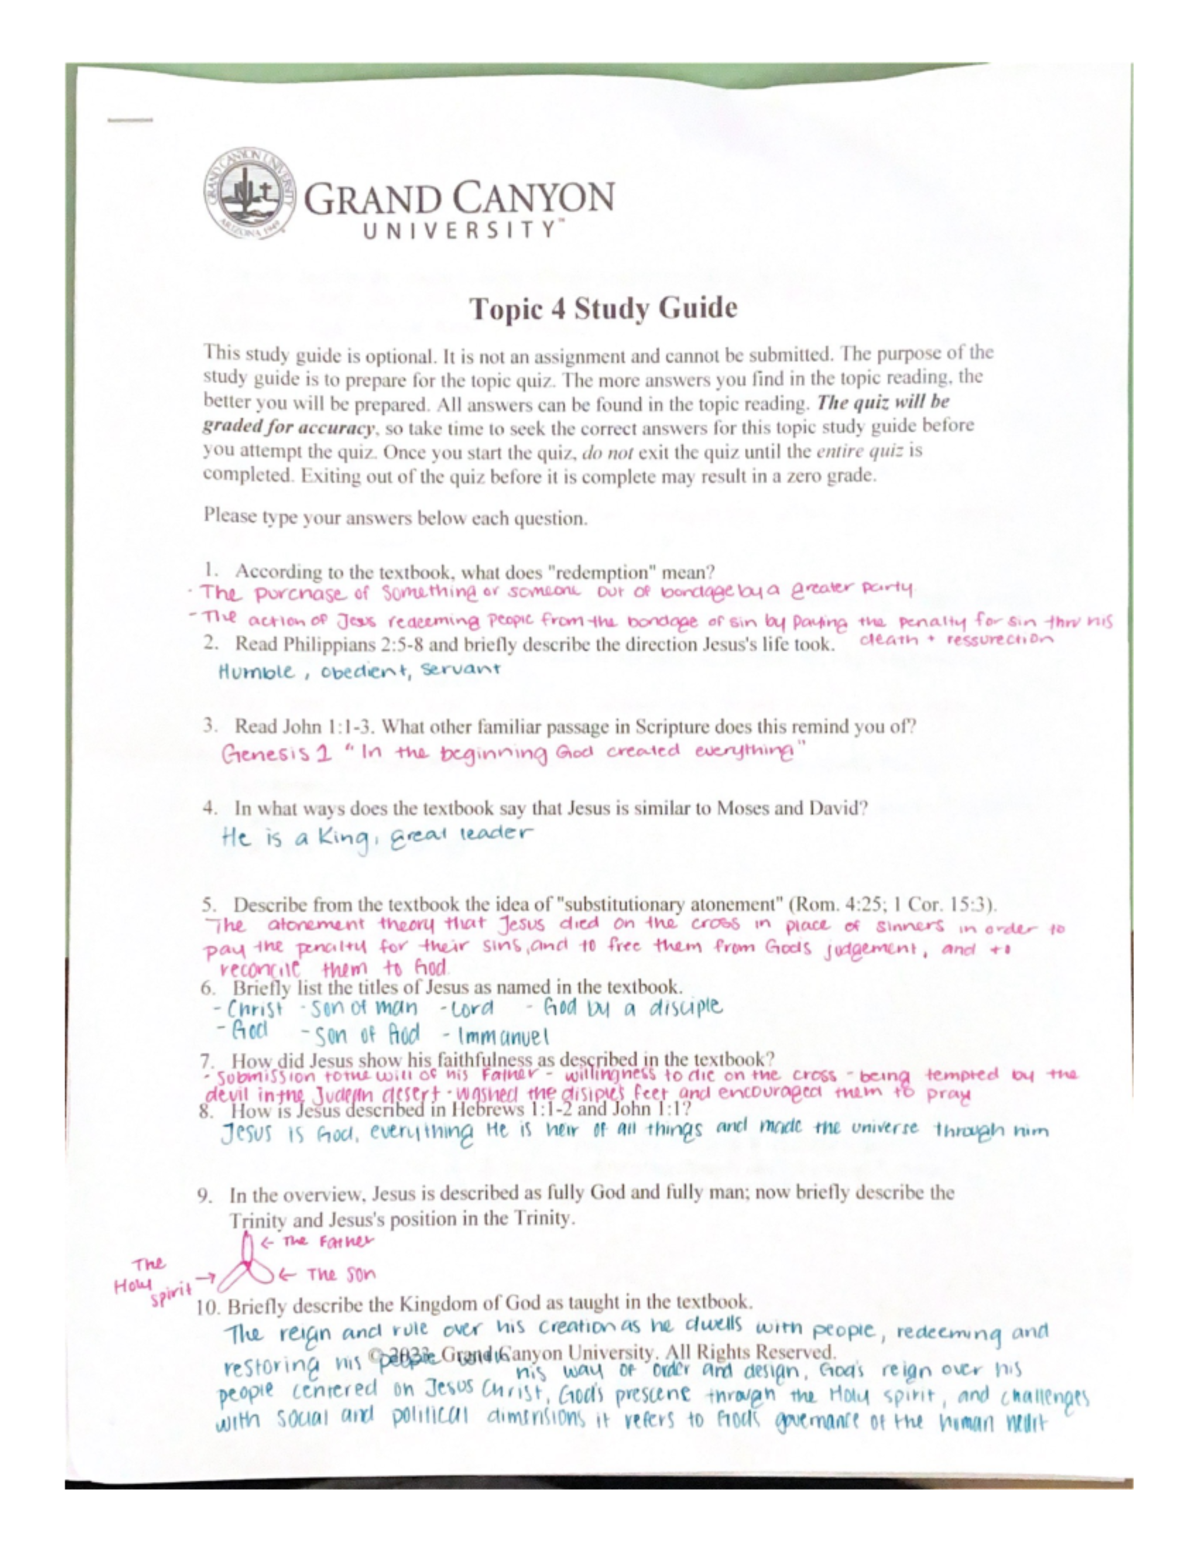 GRAND CANYON UNIVERSITY
ARIZONA 1949
GRAND CANYON
UNIVERSITY™
Topic 4 Study Guide
This study guide is optional. It is not an assignment and cannot be submitted. The purpose of the
study guide is to prepare for the topic quiz. The more answers you find in the topic reading, the
better you will be prepared. All answers can be found in the topic reading. The quiz will be
graded for accuracy, so take time to seek the correct answers for this topic study guide before
you attempt the quiz. Once you start the quiz, do not exit the quiz until the entire quiz is
completed. Exiting out of the quiz before it is complete may result in a zero grade.
Please type your answers below each question.
1. According to the textbook, what does "redemption" mean?
- The purchase of something or someone out of bondage by a greater party
- The action of Jesus redeeming people from the bondage of sin by paying the penalty for sin thru his
death + ressurection
2. Read Philippians 2:5-8 and briefly describe the direction Jesus's life took.
Humble, obedient, servant
3. Read John 1:1-3. What other familiar passage in Scripture does this remind you of?
Genesis 1 "In the beginning God created everything"
4. In what ways does the textbook say that Jesus is similar to Moses and David?
He is a King, great leader
5. Describe from the textbook the idea of "substitutionary atonement" (Rom. 4:25; 1 Cor. 15:3).
The atonement theory that Jesus died on the cross in place of sinners in order to
pay the penalty for their sins, and to free them from Gods judgement, and to
reconcile them to God.
6. Briefly list the titles of Jesus as named in the textbook.
- Christ - Son of man - Lord - God by a disciple
- God - Son of God - Immanuel
7. How did Jesus show his faithfulness as described in the textbook?
- Submission to the will of his Father - willingness to die on the cross - being tempted by the
devil in the Judean desert - washed the disiples feet and encouraged them to pray
8. How is Jesus described in Hebrews 1:1-2 and John 1:1?
Jesus is God, everything He is heir of all things and made the universe through him
9. In the overview, Jesus is described as fully God and fully man; now briefly describe the
Trinity and Jesus's position in the Trinity.
← The Father
The
Holy
spirit →
← The Son
10. Briefly describe the Kingdom of God as taught in the textbook.
The reign and rule over his creation as he dwells with people, redeeming and
restoring his people
© Grand Canyon University. All Rights Reserved.
his way of order and design, God's reign over his
people centered on Jesus Christ, God's prescene through the Holy spirit, and challenges
with social and political dimensions it refers to Gods governance of the human heart